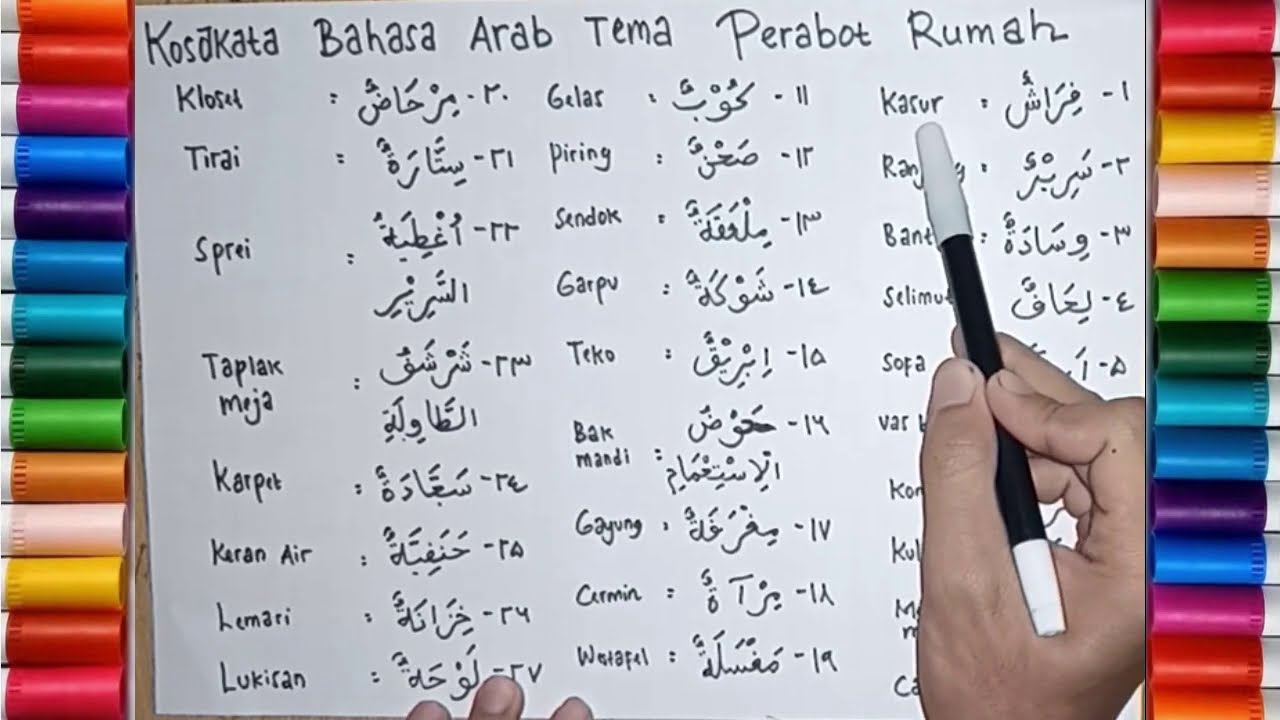 Kosakata Bahasa Arab Tema Perabot Rumah
١- فِرَاشٌ : Kasur
٢- سَرِيْرٌ :
٣- وِسَادَةٌ :
٤- لِحَافٌ Selimut
٥- Sofa
١١- كُوْبٌ : Gelas
١٢- صَحْنٌ : Piring
١٣- مِلْعَقَةٌ : Sendok
١٤- شَوْكَةٌ : Garpu
١٥- اِبْرِيْقٌ : Teko
١٦- حَوْضٌ : Bak
الْاِسْتِحْمَامِ mandi
١٧- مِغْرَفَةٌ : Gayung
١٨- مِرْآةٌ : Cermin
١٩- مَغْسَلَةٌ : Wastafel
٢٠- مِرْحَاضٌ : Kloset
٢١- سِتَّارَةٌ : Tirai
٢٢- اُغْطِيَةُ : Sprei
السَّرِيْرِ
٢٣- شَرْشَفُ : Taplak
الطَّاوِلَةِ meja
٢٤- سَجَّادَةٌ : Karpet
٢٥- حَنَفِيَّةٌ : Keran Air
٢٦- خِزَانَةٌ : Lemari
٢٧- لَوْحَةٌ : Lukisan